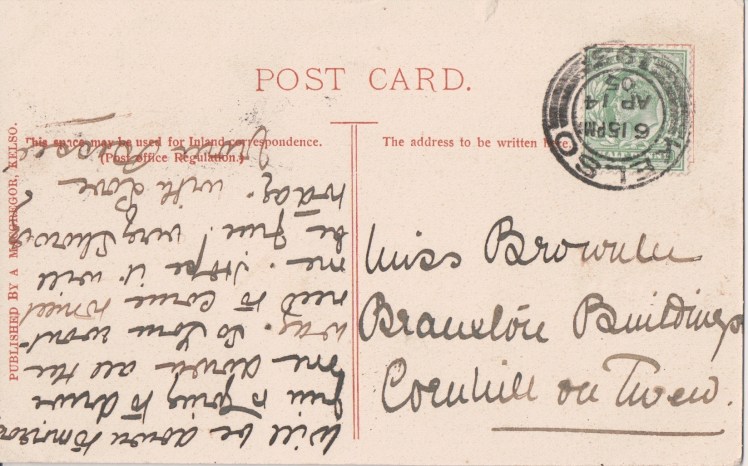 POST CARD.
This space may be used for Inland correspondence.
(Post Office Regulation.)
The address to be written here.
PUBLISHED BY A MACGREGOR, KELSO.
KELSO
6 15PM
AP 14
05
193
Miss Brownlee
Branxton Buildings
Cornhill on Tweed.
Will be down tomorrow
Jim is going to drive
me down all the
way. So you wont
need to come to meet
me. Hope it will
be fine! very showery
today. with love